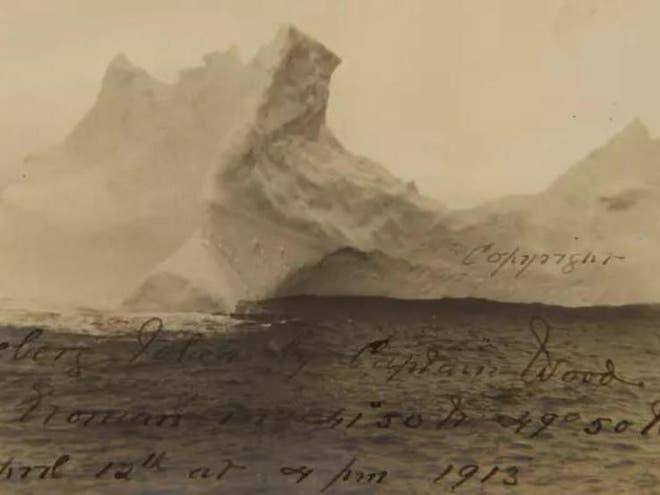 Copyright
berg Taken by Captain Wood
Etonian in 41°50 N 49°50 W
pril 12th at 4 pm 1913